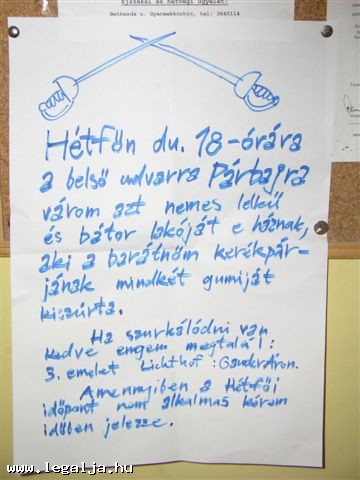 Éjszakai és hétvégi ügyelet:
Bethesda u. Gyermekkórház, tel: 3845114
Hétfőn du. 18-órára
a belső udvarra Párbajra
várom azt nemes lelkű
és bátor lakóját e háznak,
aki a barátnőm kerékpár-
jának mindkét gumiját
kiszúrta.
Ha szurkálódni van
kedve engem megtalál:
3. emelet Lichthof: Gander Áron.
Amennyiben a Hétfői
időpont nem alkalmas kérem
időben jelezze.
www.legalja.hu